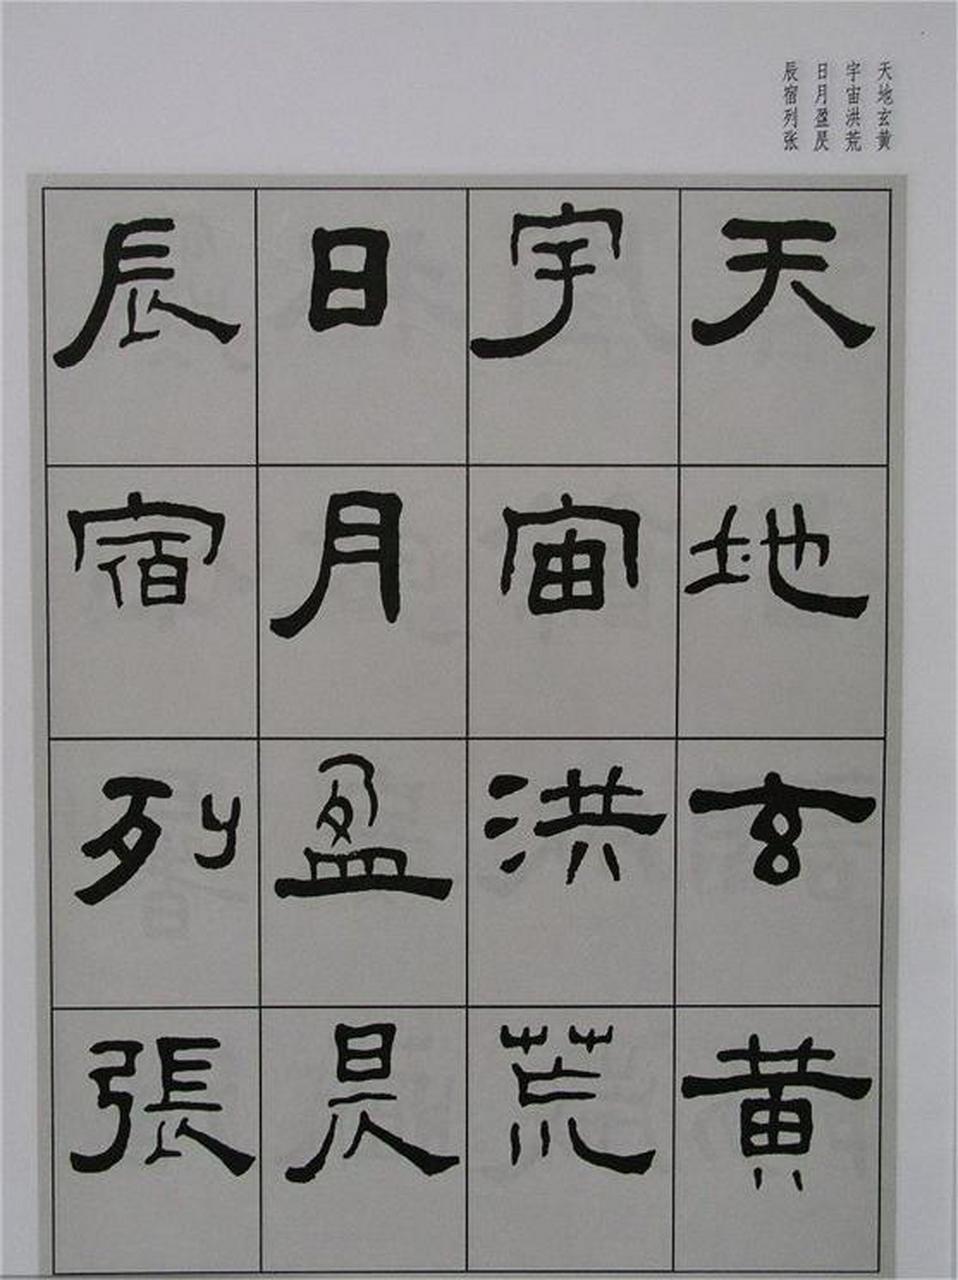 天地玄黄
宇宙洪荒
日月盈昃
辰宿列张
天地玄黄
宇宙洪荒
日月盈昃
辰宿列張